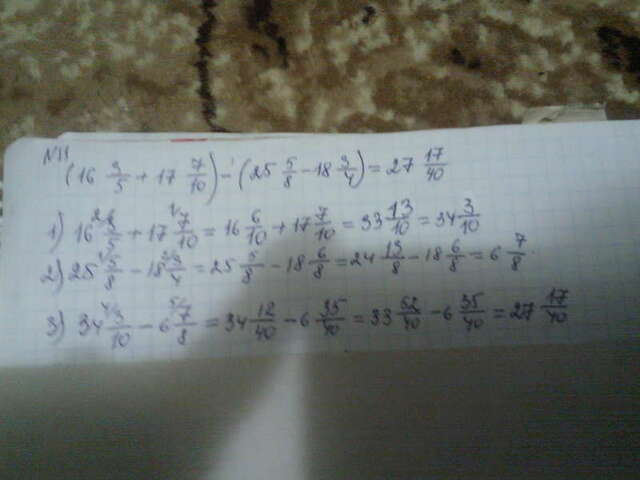 N11
(16 3/5 + 17 7/10) - (25 5/8 - 18 3/4) = 27 17/40
1) 16 3/5 + 17 7/10 = 16 6/10 + 17 7/10 = 33 13/10 = 34 3/10
2) 25 5/8 - 18 3/4 = 25 5/8 - 18 6/8 = 24 13/8 - 18 6/8 = 6 7/8.
3) 34 3/10 - 6 7/8 = 34 12/40 - 6 35/40 = 33 52/40 - 6 35/40 = 27 17/40